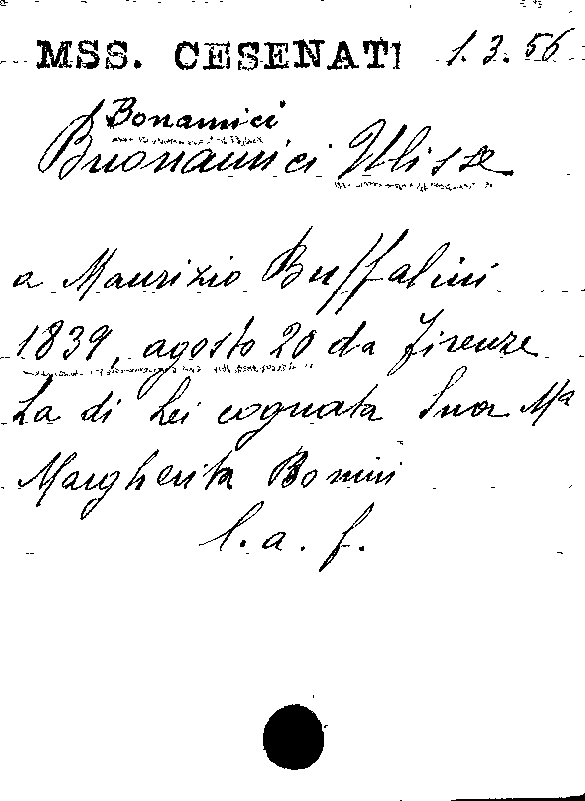 MSS. CESENATI 1.3.56
Bonamici
Buonamici Ulisse
a Maurizio Buffalini
1839, agosto 20 da Firenze
La di Lei cognata Suor Mª
Margherita Bonini
l. a. f.